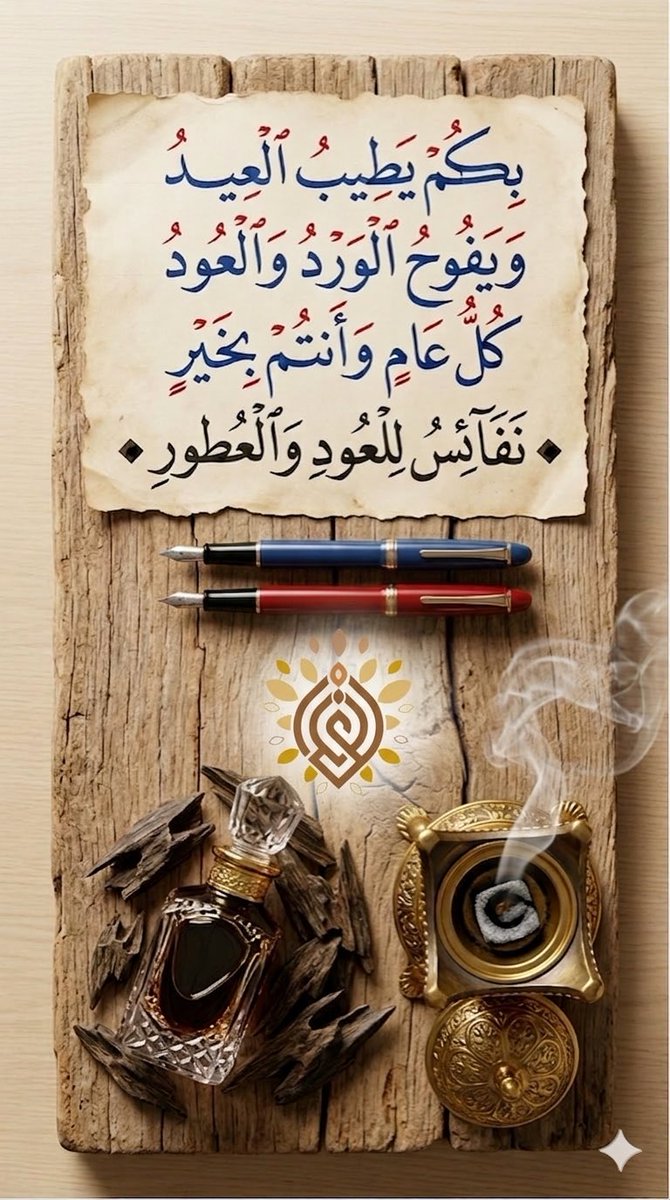 بِكُمْ يَطِيبُ ٱلْعِيدُ
وَيَفُوحُ ٱلْوَرْدُ وَٱلْعُودُ
كُلُّ عَامٍ وَأَنتُمْ بِخَيْرٍ
نَفَآئِسُ لِلْعُودِ وَٱلْعُطُورِ